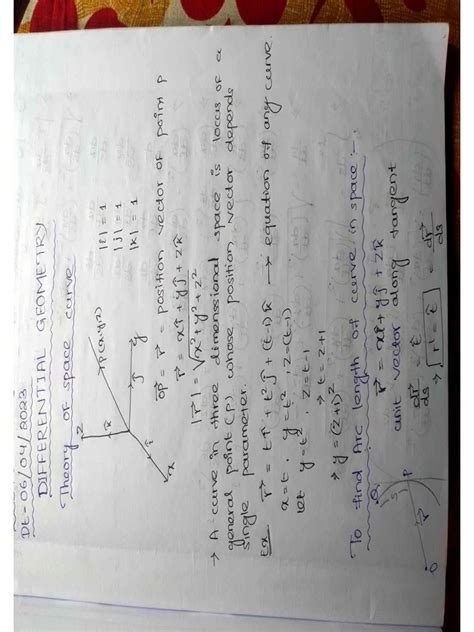 Dt-06/04/2023
DIFFERENTIAL GEOMETRY
Theory of space curve
z
P(x,y,z)
k̂
ĵ
y
î
x
|î| = 1
|ĵ| = 1
|k̂| = 1
OP⃗ = r⃗ = position vector of point P
r⃗ = xî + yĵ + zk̂
|r⃗| = √x²+y²+z²
→ A curve in three dimensional space is locus of a
general point (P) whose position vector depends
single parameter.
Ex r⃗ = tî + t²ĵ + (t-1)k̂ → equation of any curve.
x=t, y=t², z=(t-1)
let y=t², z=t-1
→ t=z+1
→ y=(z+1)²
To find Arc length of curve in space:-
r⃗ = xî + yĵ + zk̂
unit vector along tangent
dr⃗/ds = t̂
→ r' = t̂ = dr⃗/ds
Q
S
P
r⃗
O